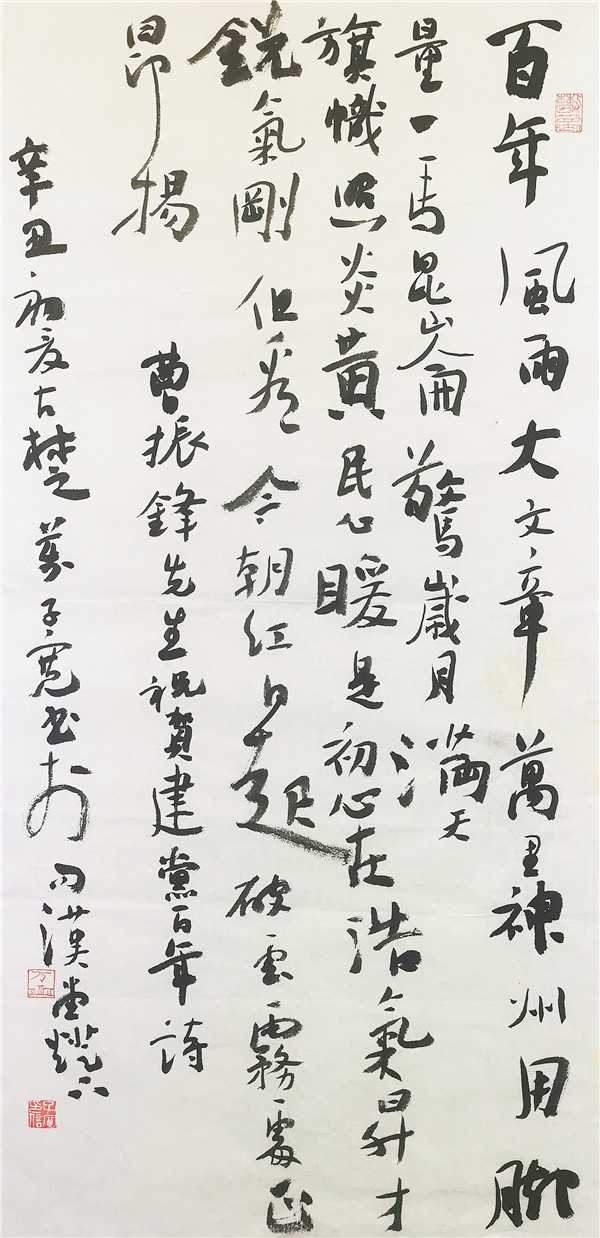 百年風雨大文章萬里神州用腳
量一馬昆崙驚歲月滿天
旗幟照炎黃民心暖是初心在浩氣昇才
銳氣剛但看今朝紅日起破雲霧處正
昂揚
曹振鋒先生祝賀建黨百年詩
辛丑初夏古楚萬子寬書於問漢堂燈下